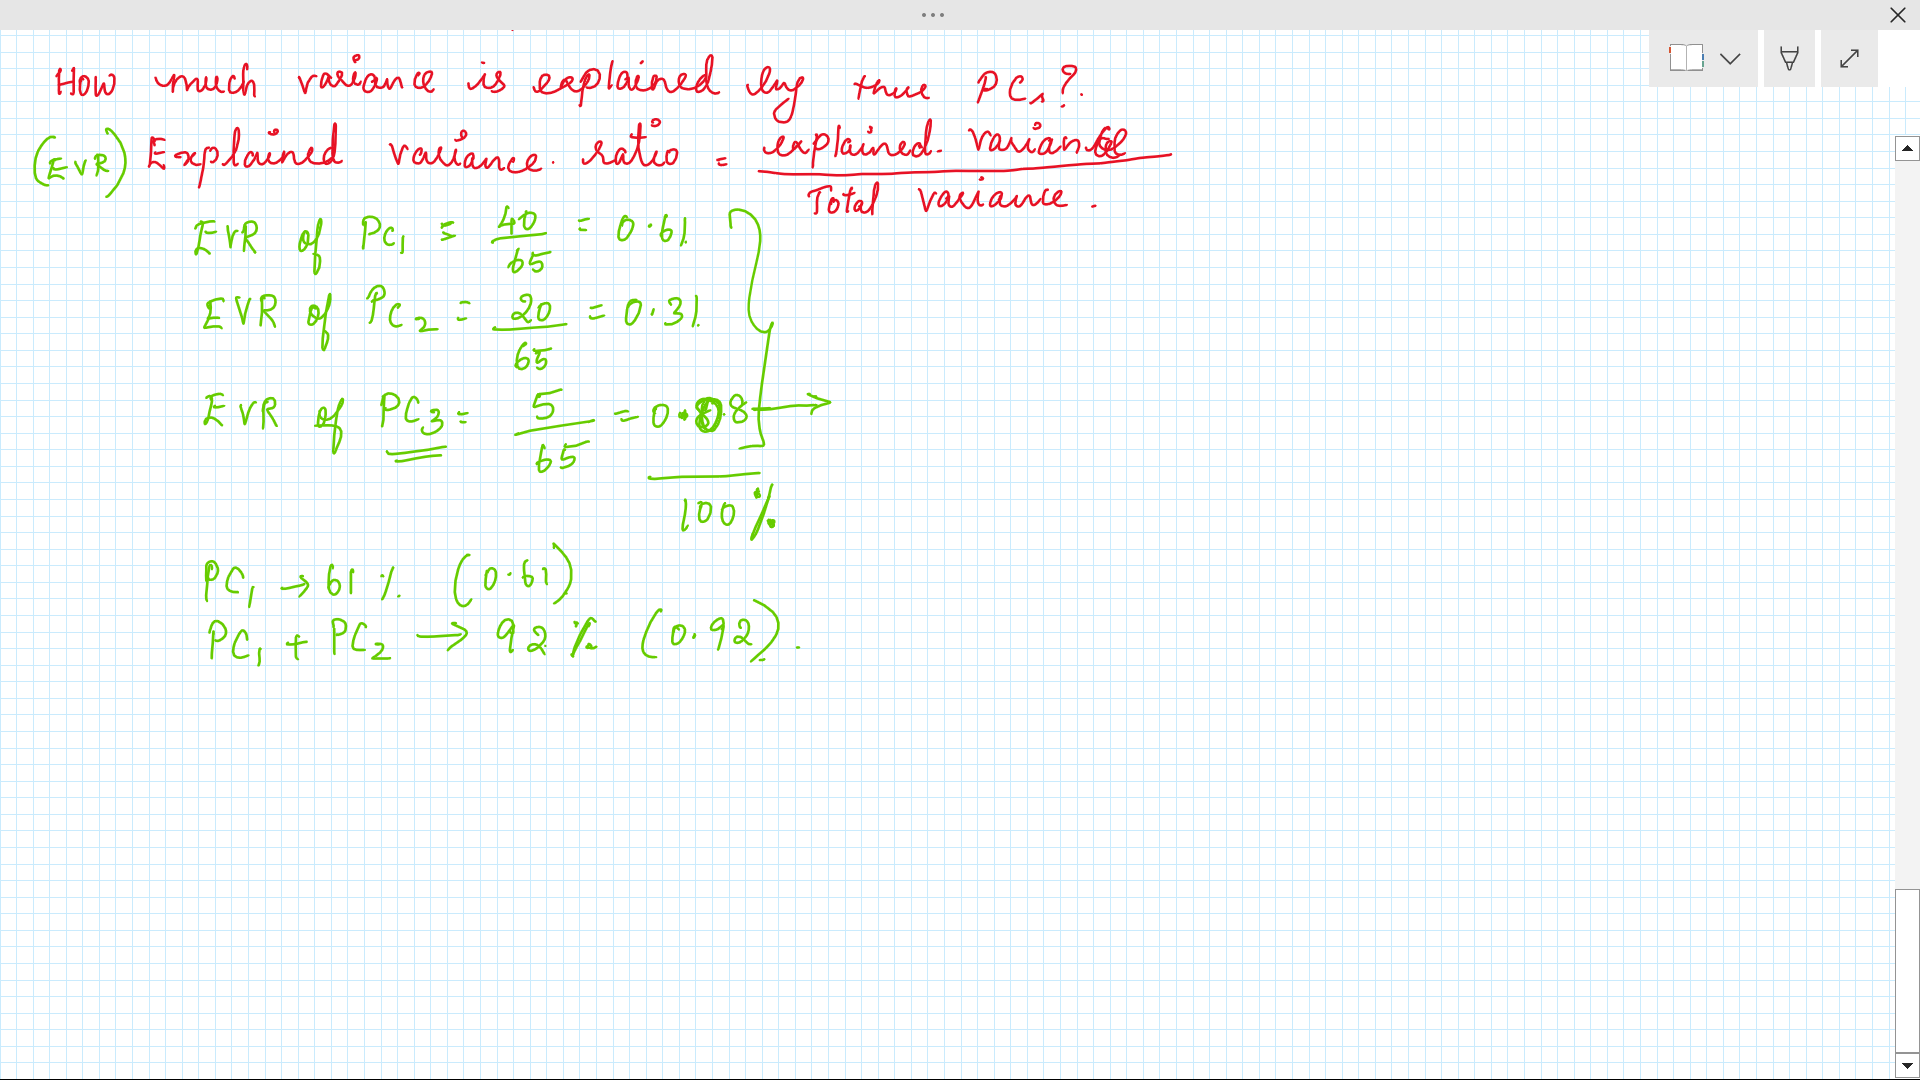 How much variance is explained by these PCs?
(EVR) Explained variance ratio = explained variance
Total variance.
EVR of PC1 = 40/65 = 0.61
EVR of PC2 = 20/65 = 0.31
EVR of PC3 = 5/65 = 0.08 →
100%
PC1 → 61% (0.61)
PC1 + PC2 → 92% (0.92).